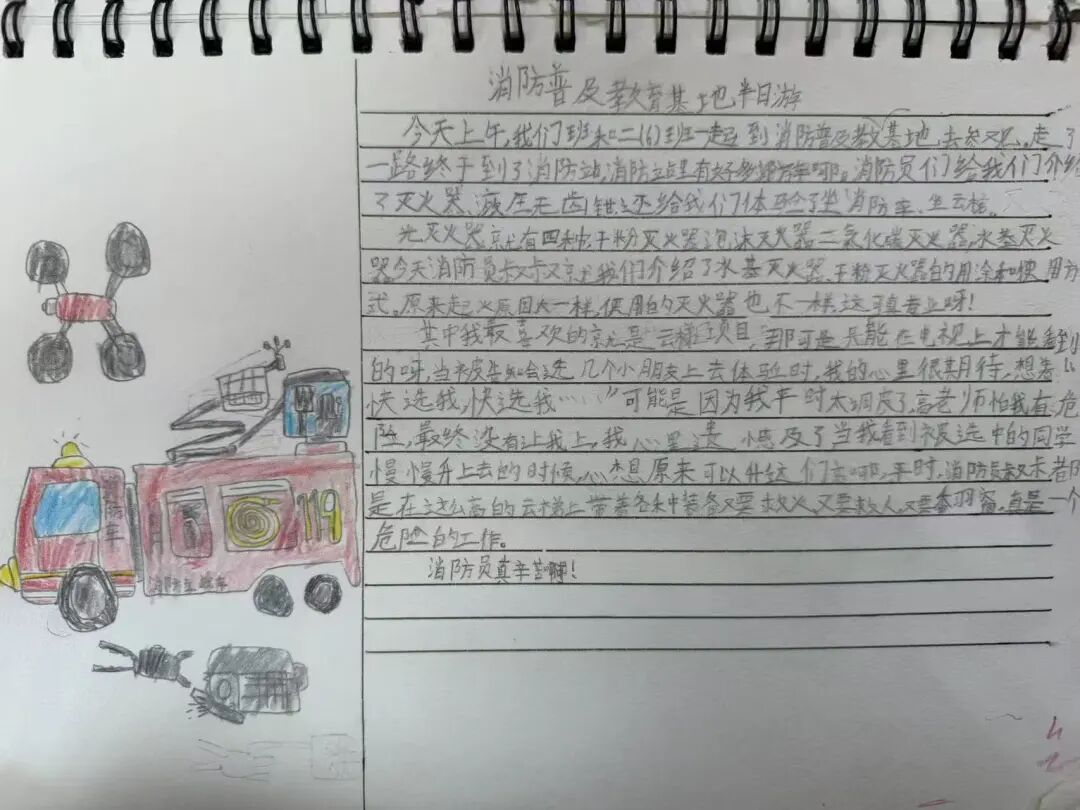 消防普及教育基地半日游
今天上午,我们班和二(6)班一起到消防普及教基地去参观。走了
一路终于到了消防站,消防站里有好多消防车哪。消防员们给我们介绍
了灭火器、液压无齿锯,还给我们体验了坐消防车、坐云梯。
光灭火器就有四种:干粉灭火器泡沫灭火器二氧化碳灭火器,水基灭火
器今天消防员叔叔就我们介绍了水基灭火器、干粉灭火器的用涂和使用方
式。原来起火原因太一样,使用的灭火器也不一样,这可真专业呀!
其中我最喜欢的就是云梯项目,那可是只能在电视上才能看到
的呀,当被告知会选几个小朋友上去体验时,我的心里很期待,想着“
快选我,快选我……”可能是因为我平时太调皮了,高老师怕我有危
险,最终没有让我上,我心里遗憾及了当我看到被选中的同学
慢慢升上去的时候,心想原来可以升这们高哪,平时,消防员叔叔都
是在这么高的云梯上带着各种装备又要救火,又要救人,又要,真是一个
危险的工作。
消防员真辛苦啊!
消防车
119